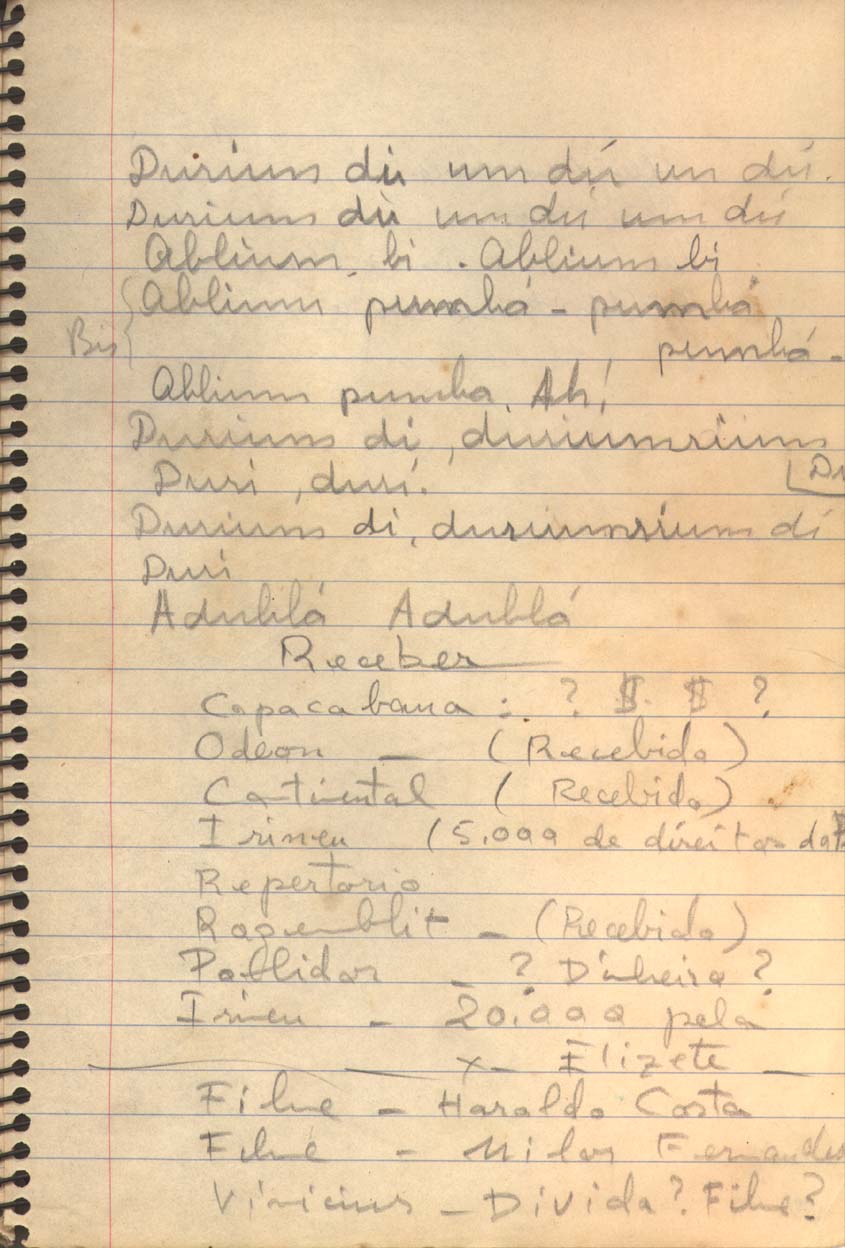 Durium dú um dú un dú.
Durium dú um dú um dú
Ablium bi . Ablium bi
Bis { Ablium pumbá - pumbá
pumbá -
Ablium pumba. Ah!
Durium di, diriumrium
Duri, duri. Du
Durium di, duriumrium di
Duri
Adublá Adublá
Receber
Copacabana : ? $. $ ?
Odeon — (Recebido)
Continental ( Recebido)
Irineu (5.000 de direitos da
Repertorio
Rozenblit - (Recebido)
Pollidor - ? Dinheiro ?
Irineu - 20.000 pela
x — Elizete —
Filme - Haroldo Costa
Filme - Milor Fernandes
Vinicius - Divida? Filme?